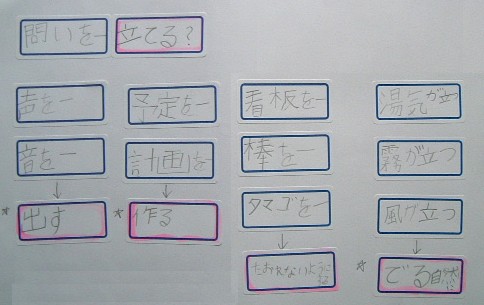 問いを一 立てる?
声を一
音を一
↓
* 出す
予定を一
計画を一
↓
* 作る
看板を一
棒を一
タマゴを一
↓
たおれないように
する
湯気が立つ
霧が立つ
風が立つ
↓
* でる自然に